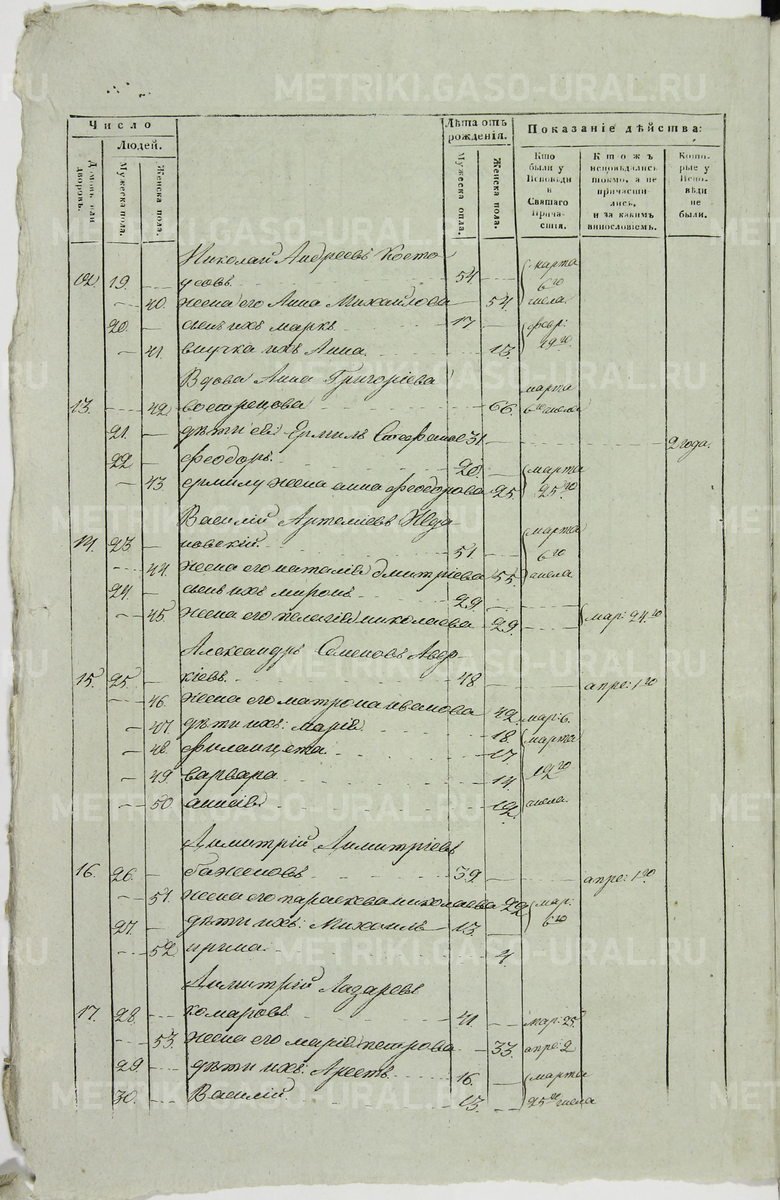 METRIKI.GASO-URAL.RU
Число
Людей.
Домовъ или дворовъ.
Мужеска пола.
Женска пола.
Лѣта отъ рожденія.
Мужеска пола.
Женска пола.
Показаніе дѣйства:
Кто были у Исповѣди и Святаго Причастія.
Ктожъ исповѣдались токмо, а не причастились, и за какимъ винословіемъ.
Которые у Исповѣди не были.
Николай Андреевъ Косто
12. 19. усовъ 54 марта 6го
40. жена его Анна Михайлова 54. числа
20. сынъ ихъ маркъ 17 февр:
41. внучка ихъ Анна. 13. 29го.
Вдова Анна Григоріева
13. 42 вострецова 66 марта 6го числа
21. дѣти ея Ермилъ Стефановъ 31 2 года.
22 феодоръ. 20. марта
43. ермилу жена анна феодорова 25. 25го
Василій Артеміевъ
14. 23 новскій. 51. марта 6го
44. жена его наталія дмитріева 55. числа
24. сынъ ихъ миронъ 29
45. жена его пелагія николаева 29. мар: 24го
Александръ Семеновъ Авер-
15. 25. кіевъ. 48 апре: 1го
46. жена его матрона иванова 42 мар: 6.
47. дѣти ихъ: марія 18. марта
48. филицета. 17
49 варвара 14 12го
50 анисія 12. числа.
Димитрій Димитріевъ
16. 26. баженовъ 39 апре: 1го
51. жена его параскева николаева 22 мар:
27. дѣти ихъ: Михаилъ 13. 6го
52 ирина. 4.
Димитрій Лазаревъ
17. 28. комаровъ 41 мар: 25.
53. жена его марія петрова 33. апре: 2
29. дѣти ихъ: Арефъ. 16. марта
30. Василій 13. 25го числа